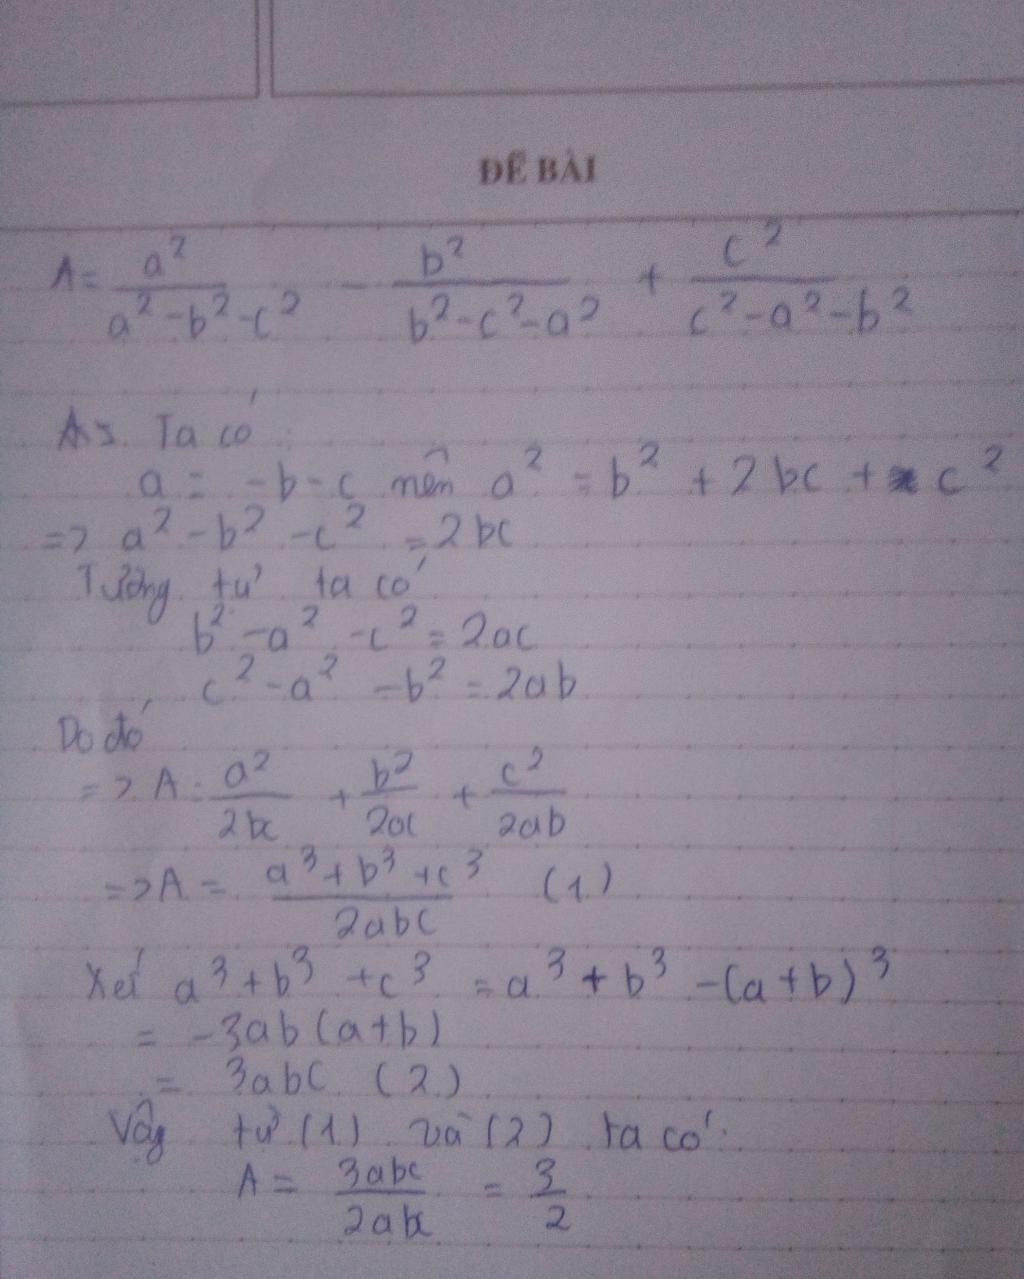 ĐỀ BÀI
A = a²/(a² - b² - c²) - b²/(b² - c² - a²) + c²/(c² - a² - b²)
Ta có:
a = -b - c nên a² = b² + 2bc + c²
=> a² - b² - c² = 2bc
Tương tự ta có
b² - a² - c² = 2ac
c² - a² - b² = 2ab
Do đó
=> A = a²/2bc + b²/2ac + c²/2ab
=> A = (a³ + b³ + c³)/2abc (1)
Xét a³ + b³ + c³ = a³ + b³ - (a + b)³
= -3ab(a + b)
= 3abc (2)
Vậy từ (1) và (2) ta có:
A = 3abc/2abc = 3/2